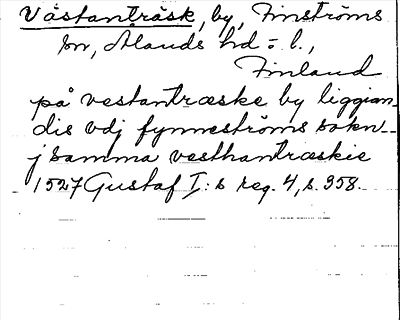 Västanträsk, by, Finströms
sn, Ålands hd o. l.,
Finland
på vestantræske by liggian-
dis vdj fynneströms sokn --
j samma vesthantræskie
1527 Gustaf I:s reg. 4, s. 358.